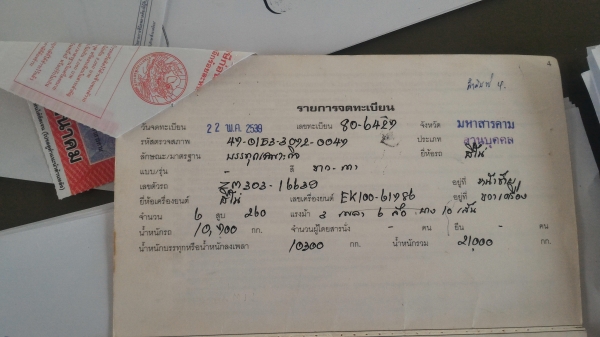 รายการจดทะเบียน
วันจดทะเบียน 22 พ.ค. 2539 เลขทะเบียน 80-6429 จังหวัด มหาสารคาม
รหัสตรวจสภาพ ประเภท ส่วนบุคคล
ลักษณะ/มาตรฐาน บรรทุกเฉพาะกิจ ยี่ห้อรถ ฮีโน่
แบบ/รุ่น - สี ขาว-เทา
เลขตัวรถ 303-16639 อยู่ที่
ยี่ห้อเครื่องยนต์ ฮีโน่ เลขเครื่องยนต์ EK100-61986 อยู่ที่
จำนวน 6 สูบ 260 แรงม้า 3 เพลา 6 ล้อ ยาง 10 เส้น
น้ำหนักรถ 10,700 กก. จำนวนผู้โดยสารนั่ง - คน ยืน - คน
น้ำหนักบรรทุกหรือน้ำหนักลงเพลา 10300 กก. น้ำหนักรวม 21,000 กก.
นาคม